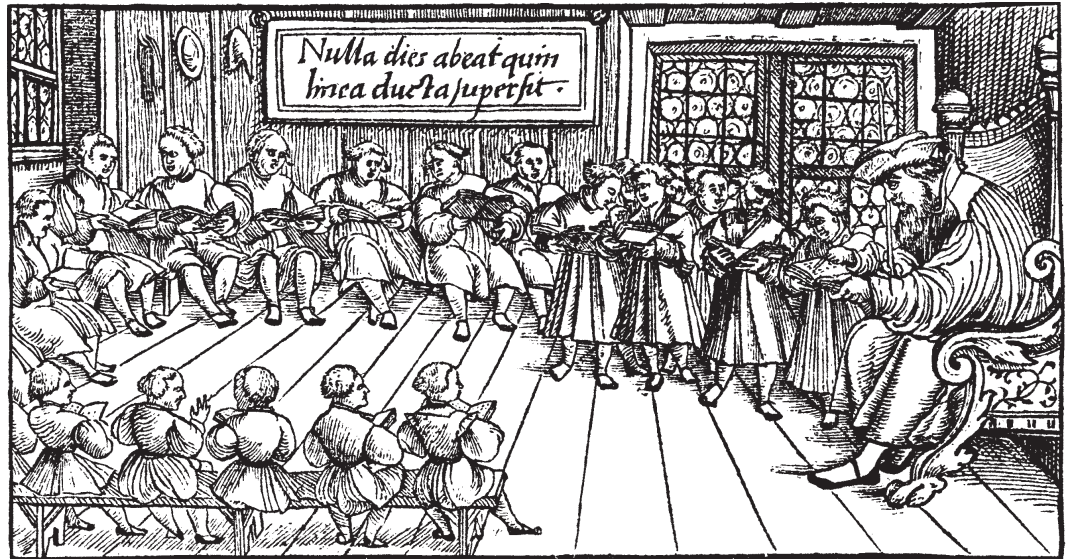 Nulla dies abeat quin
linea ducta supersit.